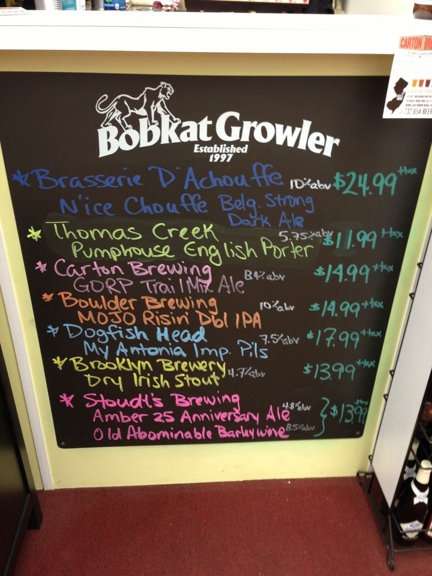 Bobkat Growler
Established
1997
* Brasserie D'Achouffe 10%abv $24.99 +tax
N'ice Chouffe Belg. Strong
Dark Ale
* Thomas Creek 5.75%abv $11.99 +tax
Pumphouse English Porter
* Carton Brewing 8.4%abv $14.99 +tax
GORP Trail Mix Ale
* Boulder Brewing 10%abv $14.99 +tax
MOJO Risin' Dbl IPA
* Dogfish Head 7.5%abv $17.99 +tax
My Antonia Imp. Pils
* Brooklyn Brewery 4.7%abv $13.99 +tax
Dry Irish Stout
* Stoudt's Brewing 4.8%abv } $13.99
Amber 25 Anniversary Ale
Old Abominable Barleywine 8.5%abv